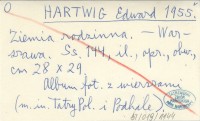 O HARTWIG Edward 1955.
Ziemia rodzinna. — War-
szawa. Ss. 144, il., opr., obw.,
cm 28 x 29.
Album fot. z wierszami
(m. in. Tatry Pol. i Podhale).